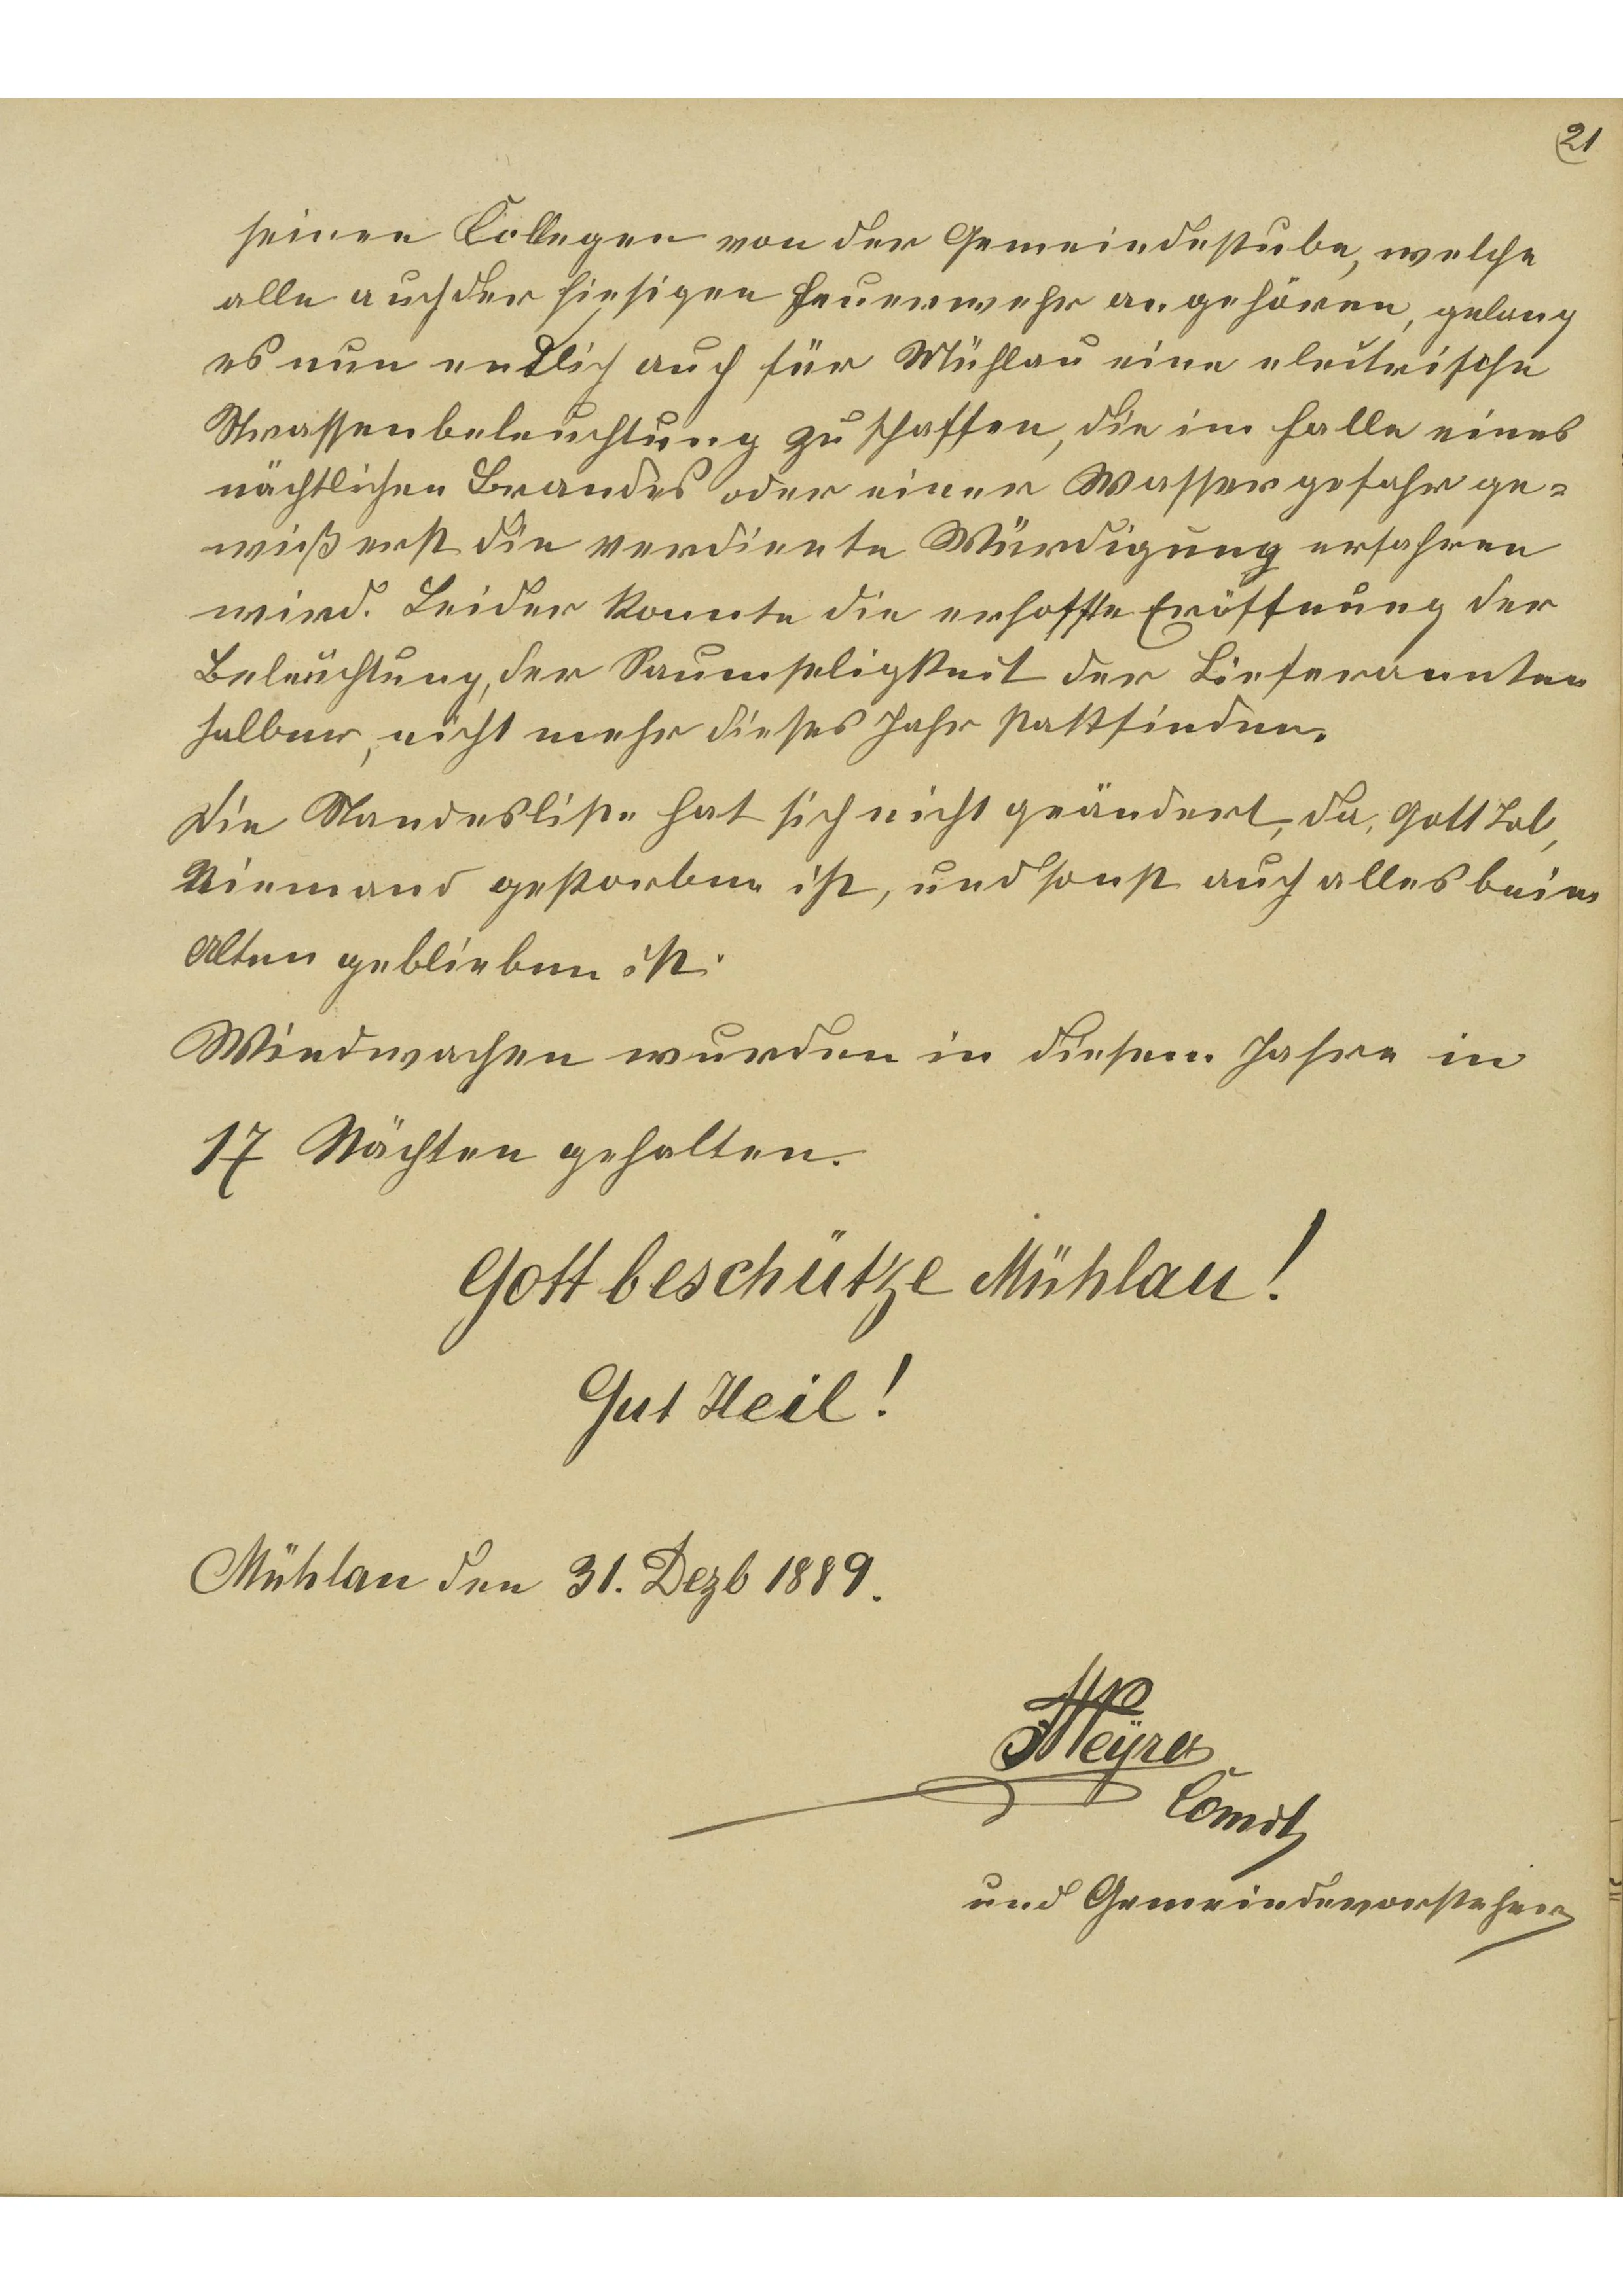 21
seinen Collegen von der Gemeindestube, welche
alle auch der hiesigen Feuerwehr angehören, gelang
es nun endlich auch für Mühlau eine electrische
Strassenbeleuchtung zu schaffen, die im Falle eines
nächtlichen Brandes oder einer Wassergefahr ge=
wiß erst die verdiente Würdigung erfahren
wird. Leider konnte die erhoffte Eröffnung der
Beleuchtung, der Saumseligkeit der Lieferannten
halber, nicht mehr dieses Jahr stattfinden.
Die Standesliste hat sich nicht geändert, da, Gott Lob,
Niemand gestorben ist, und sonst auch alles beim
Alten geblieben ist.
Windwachen wurden in diesem Jahre in
17 Nächten gehalten.
Gott beschütze Mühlau!
Gut Heil!
Mühlau den 31. Dezb 1889.
Comdt
und Gemeindevorsteher